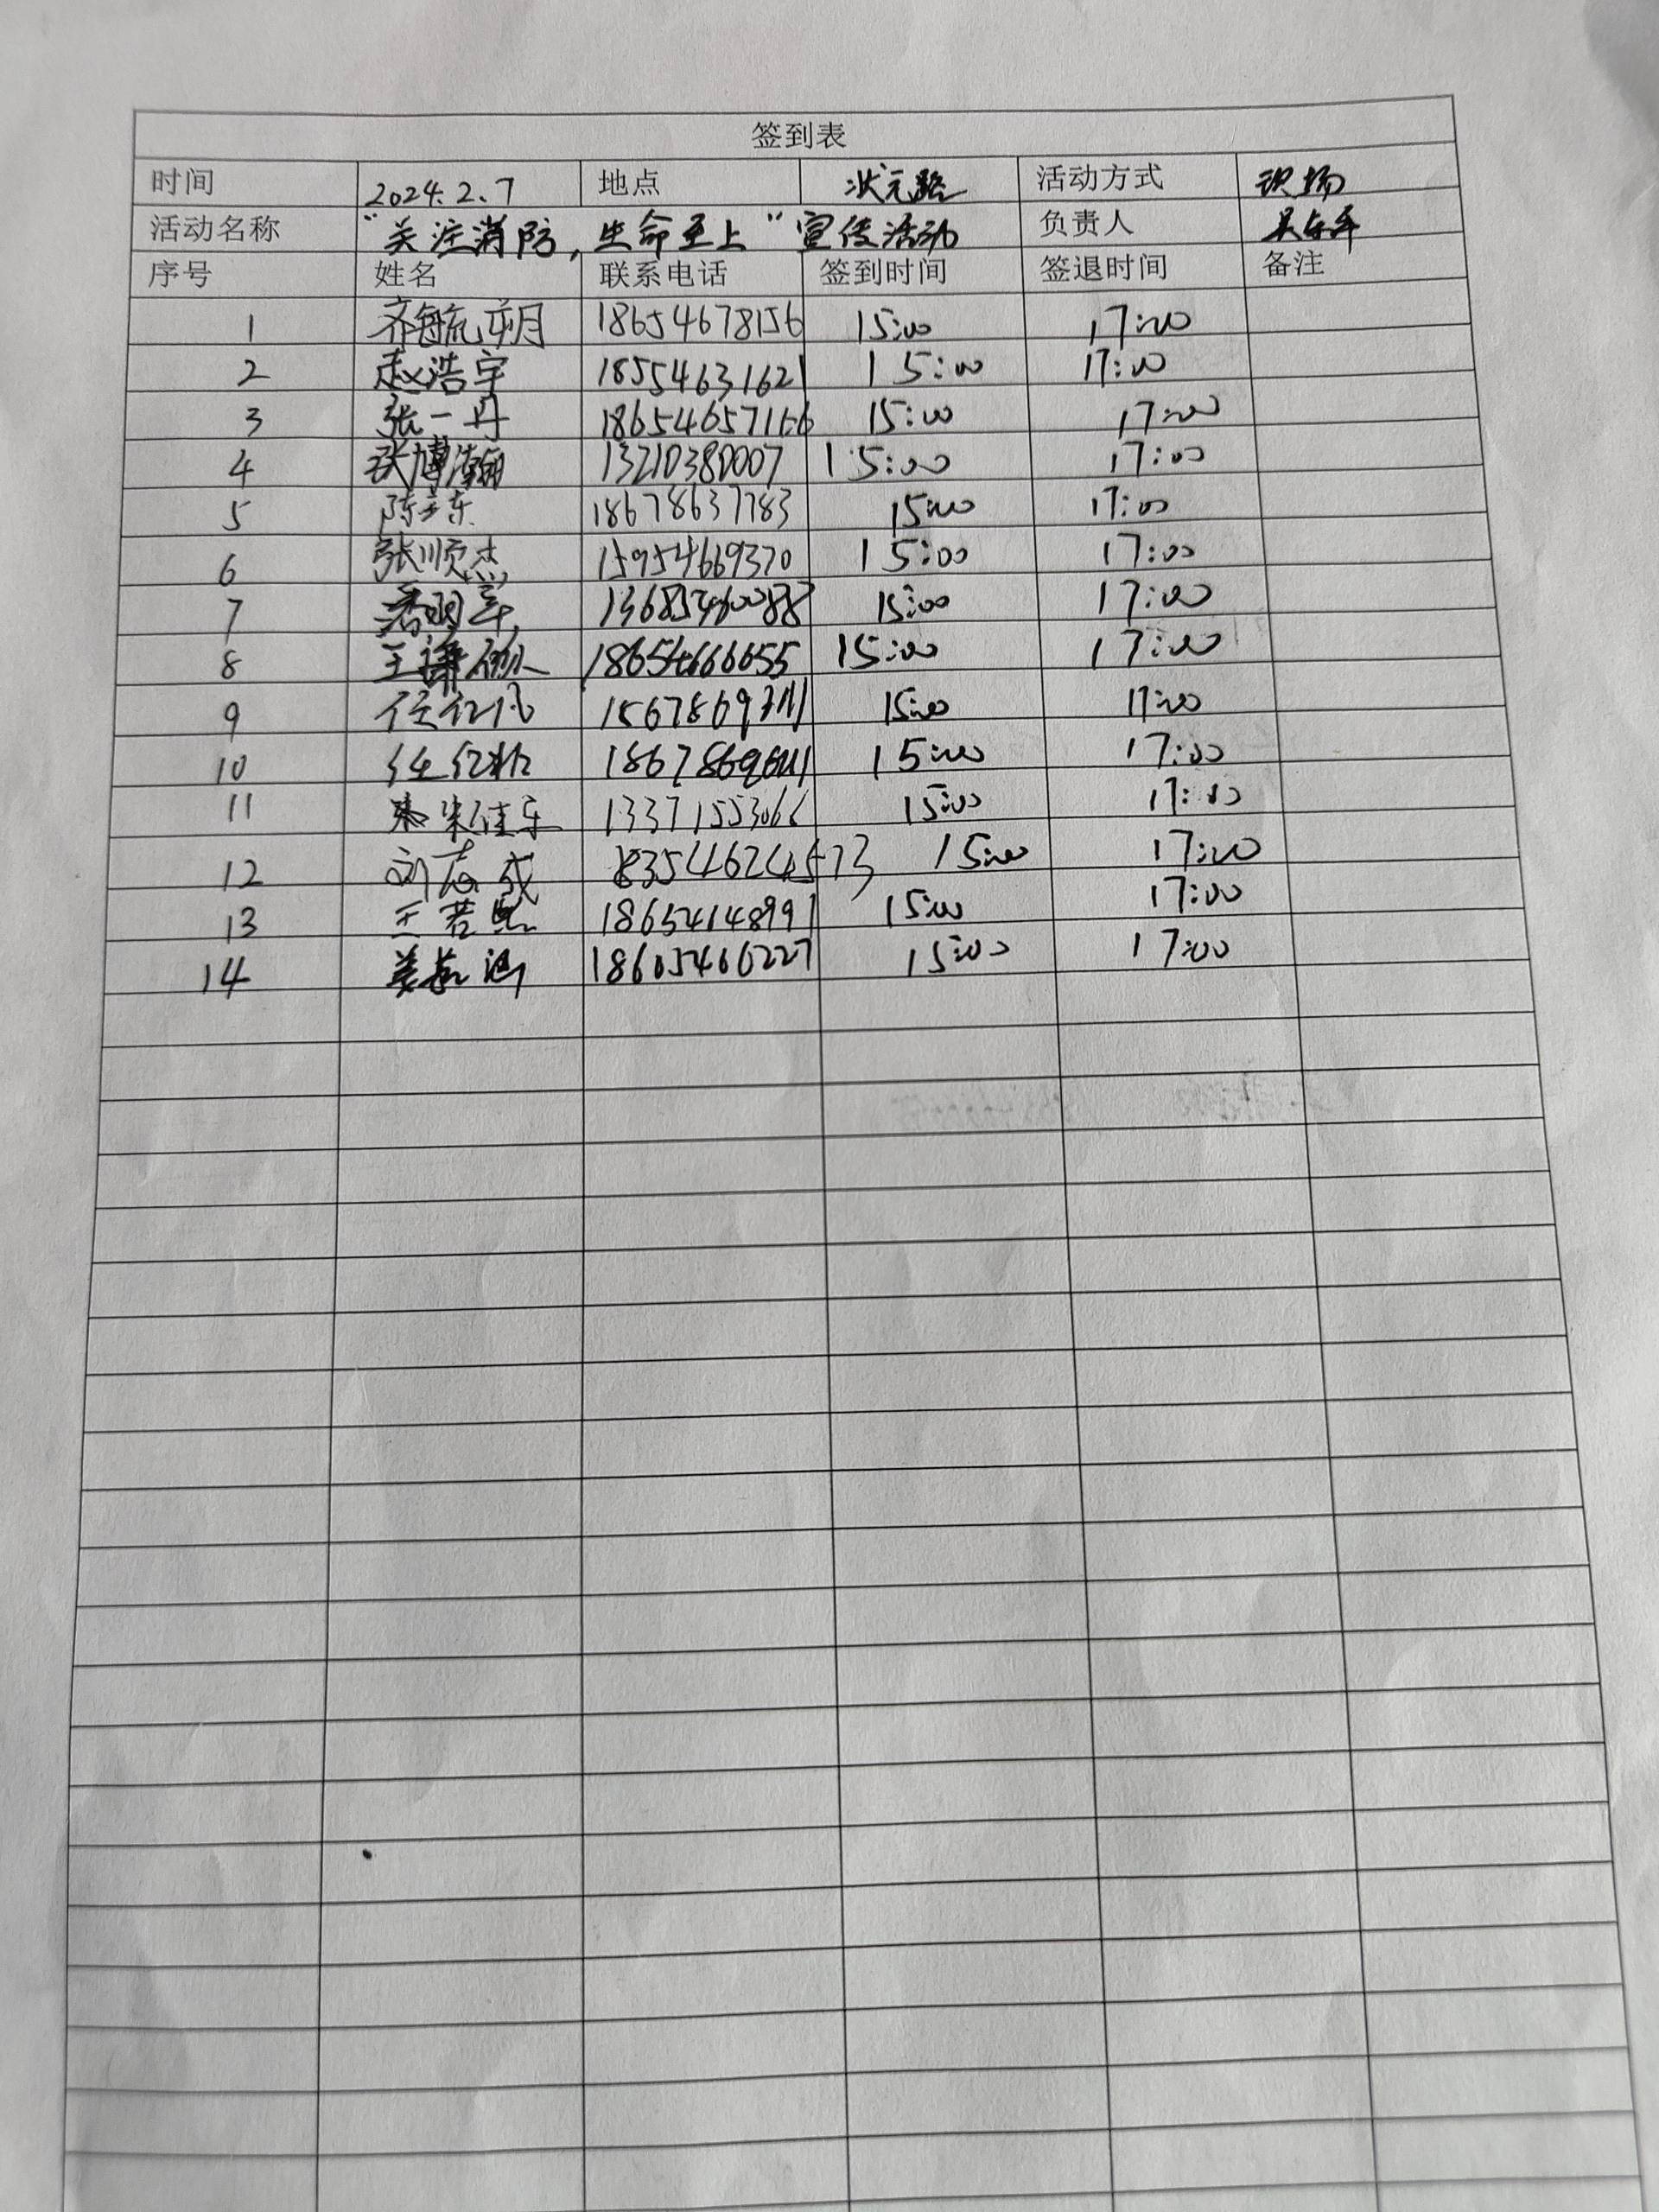 签到表
时间 2024.2.7 地点 状元路 活动方式 现场
活动名称 "关注消防,生命至上"宣传活动 负责人
序号 姓名 联系电话 签到时间 签退时间 备注
1 18654678156 15:00 17:00
2 赵浩宇 18554631621 15:00 17:00
3 张一丹 18654657166 15:00 17:00
4 张博瀚 13210380007 15:00 17:00
5 18678637783 15:00 17:00
6 张顺杰 15954669370 15:00 17:00
7 15:00 17:00
8 18654666655 15:00 17:00
9 15:00 17:00
10 15:00 17:00
11 朱佳乐 13371553066 15:00 17:00
12 刘志成 15:00 17:00
13 王若 18654148991 15:00 17:00
14 18605466227 15:00 17:00